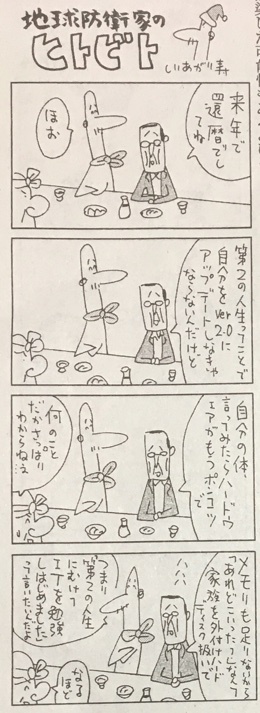 地球防衛家の
ヒトビト
しりあがり寿
来年で
還暦でし
てね
ほお
第2の人生ってことで
自分をver2.0に
アップデートしなきゃ
ならないんだけど
自分の体、
言ってみたらハードウ
ェアがもうポンコツ
で
何のこと
だかさっぱり
わからねえ
メモリも足りないから
「あれどこいった?」なんて
家族を外付けハード
ディスク扱いで
つまり
「第2の人生
にむけて
ITを勉強
しはじめました」
って言いたいんだよ
なる
ほど